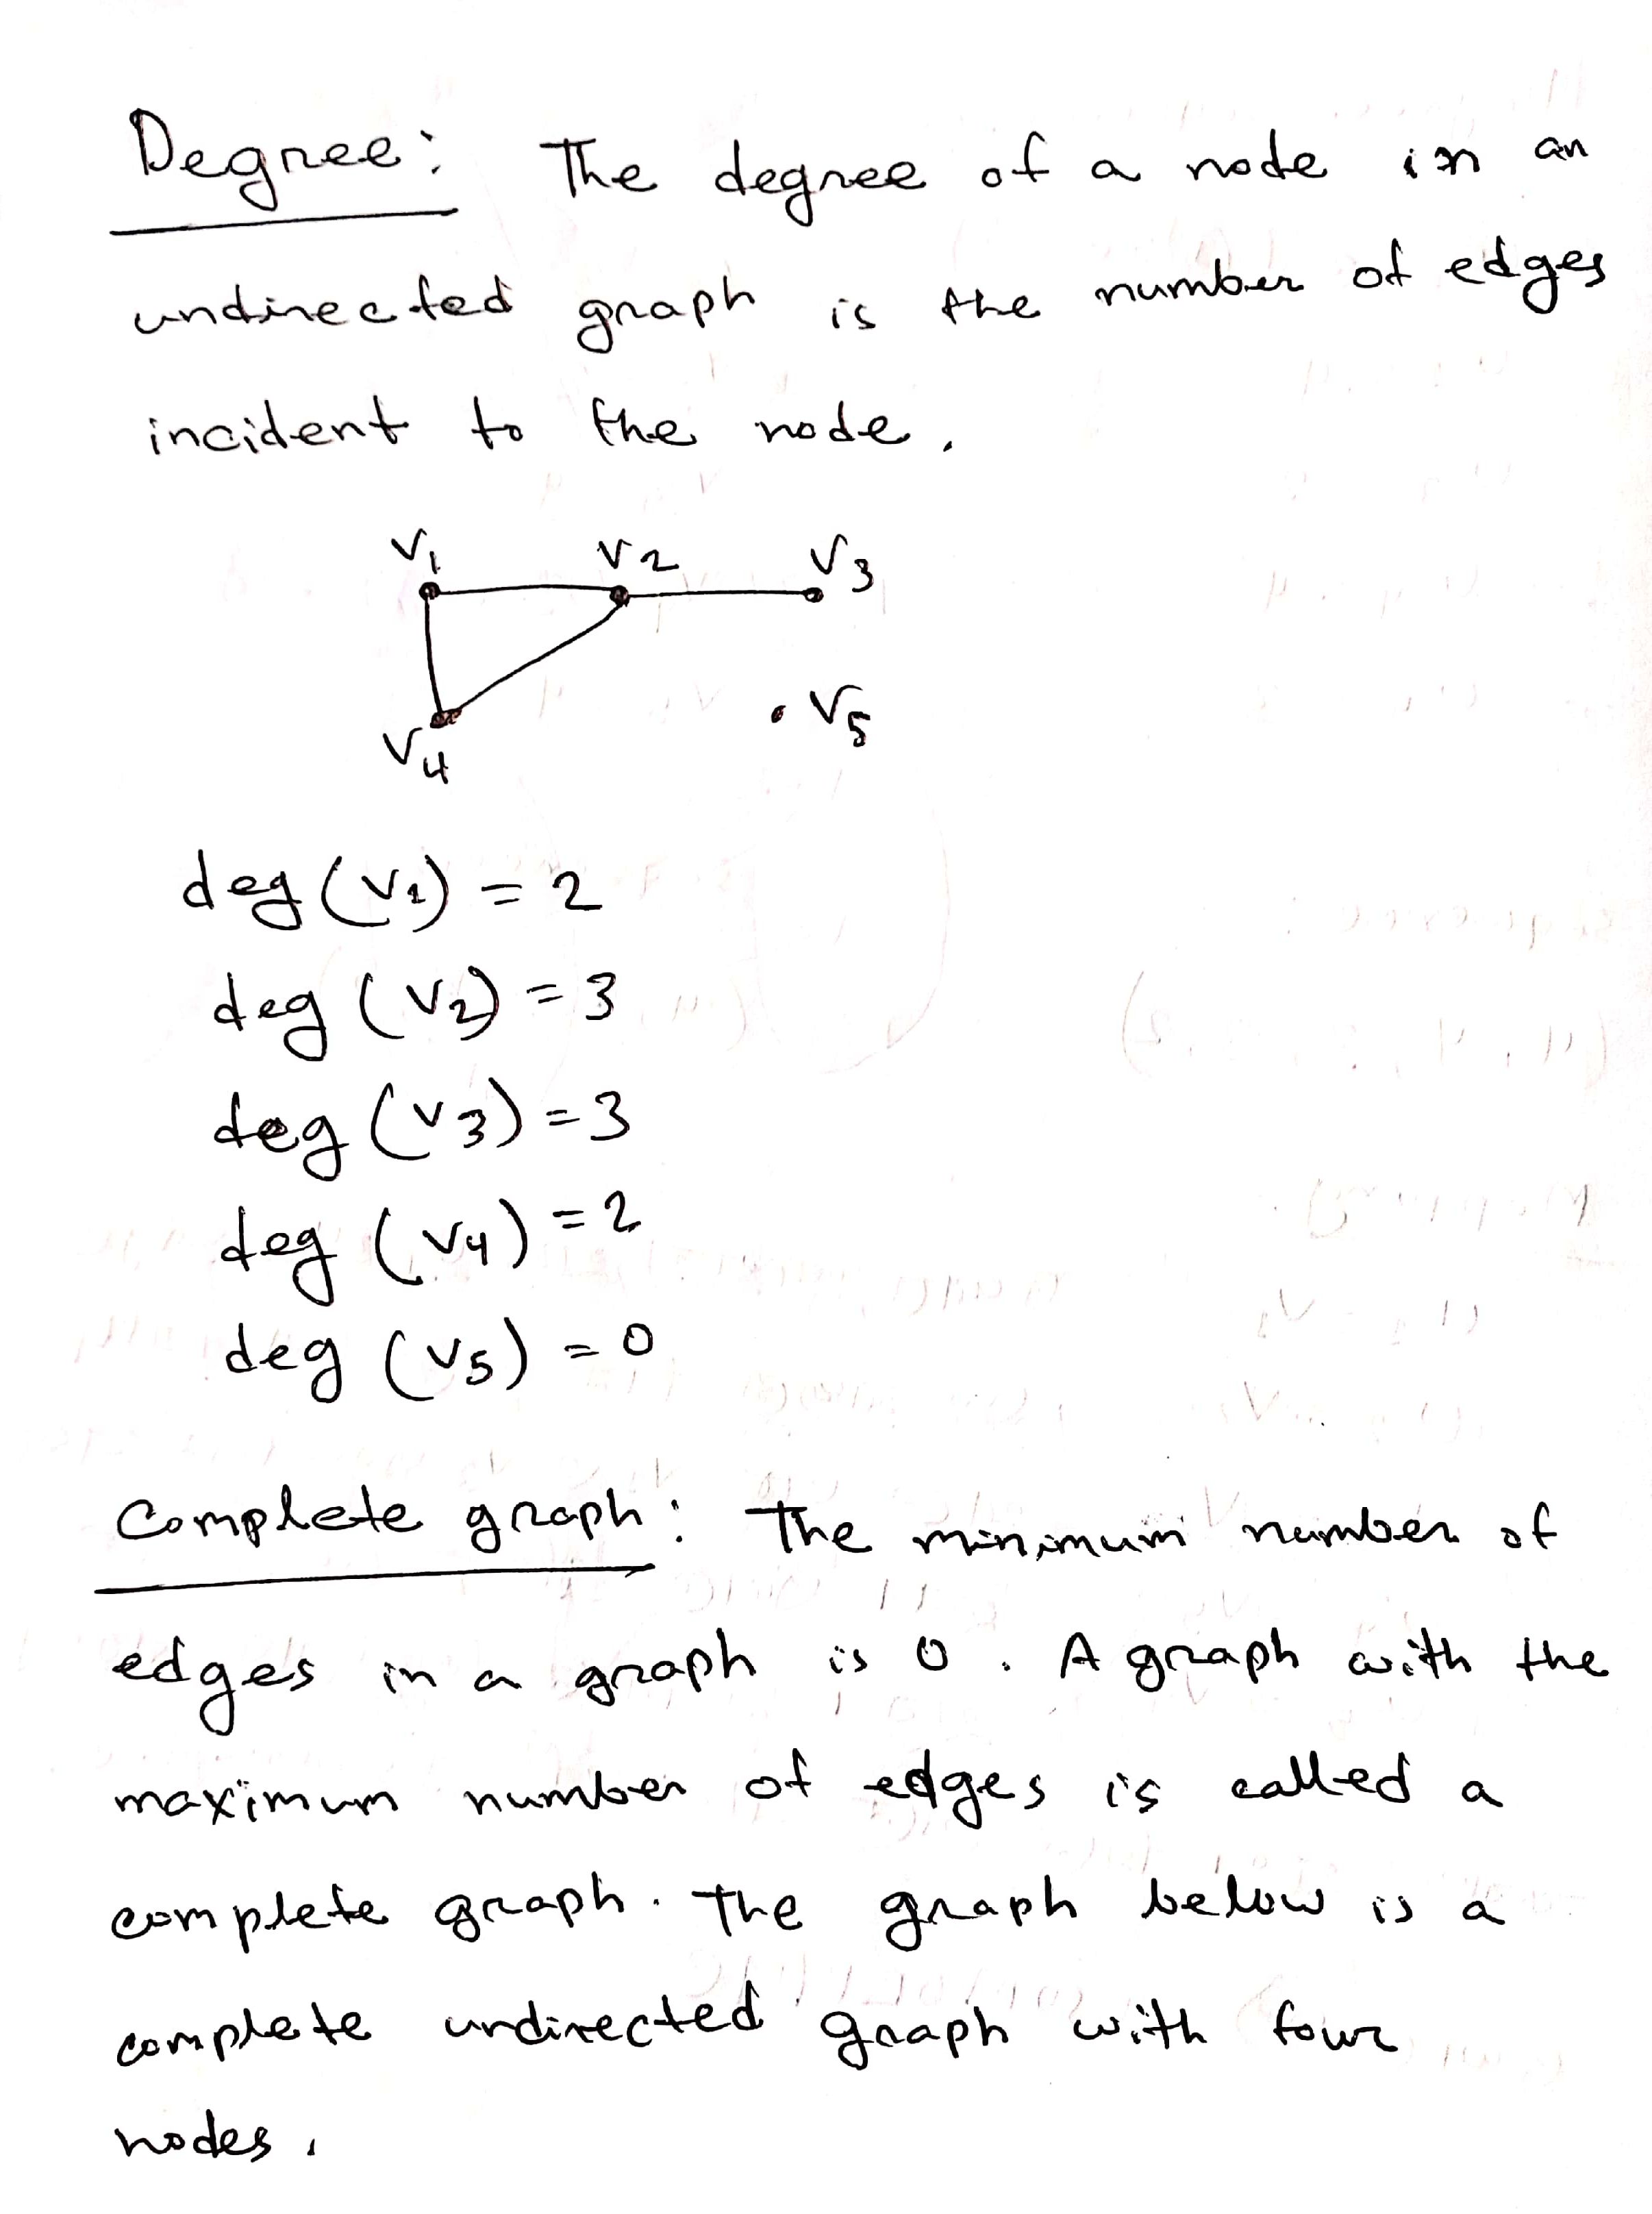 Degree: The degree of a node in an
undirected graph is the number of edges
incident to the node.
V1 V2 V3
V5
V4
deg (V1) = 2
deg (V2) = 3
deg (V3) = 3
deg (V4) = 2
deg (V5) = 0
Complete graph: The minimum number of
edges in a graph is 0. A graph with the
maximum number of edges is called a
complete graph. The graph below is a
complete undirected graph with four
nodes.